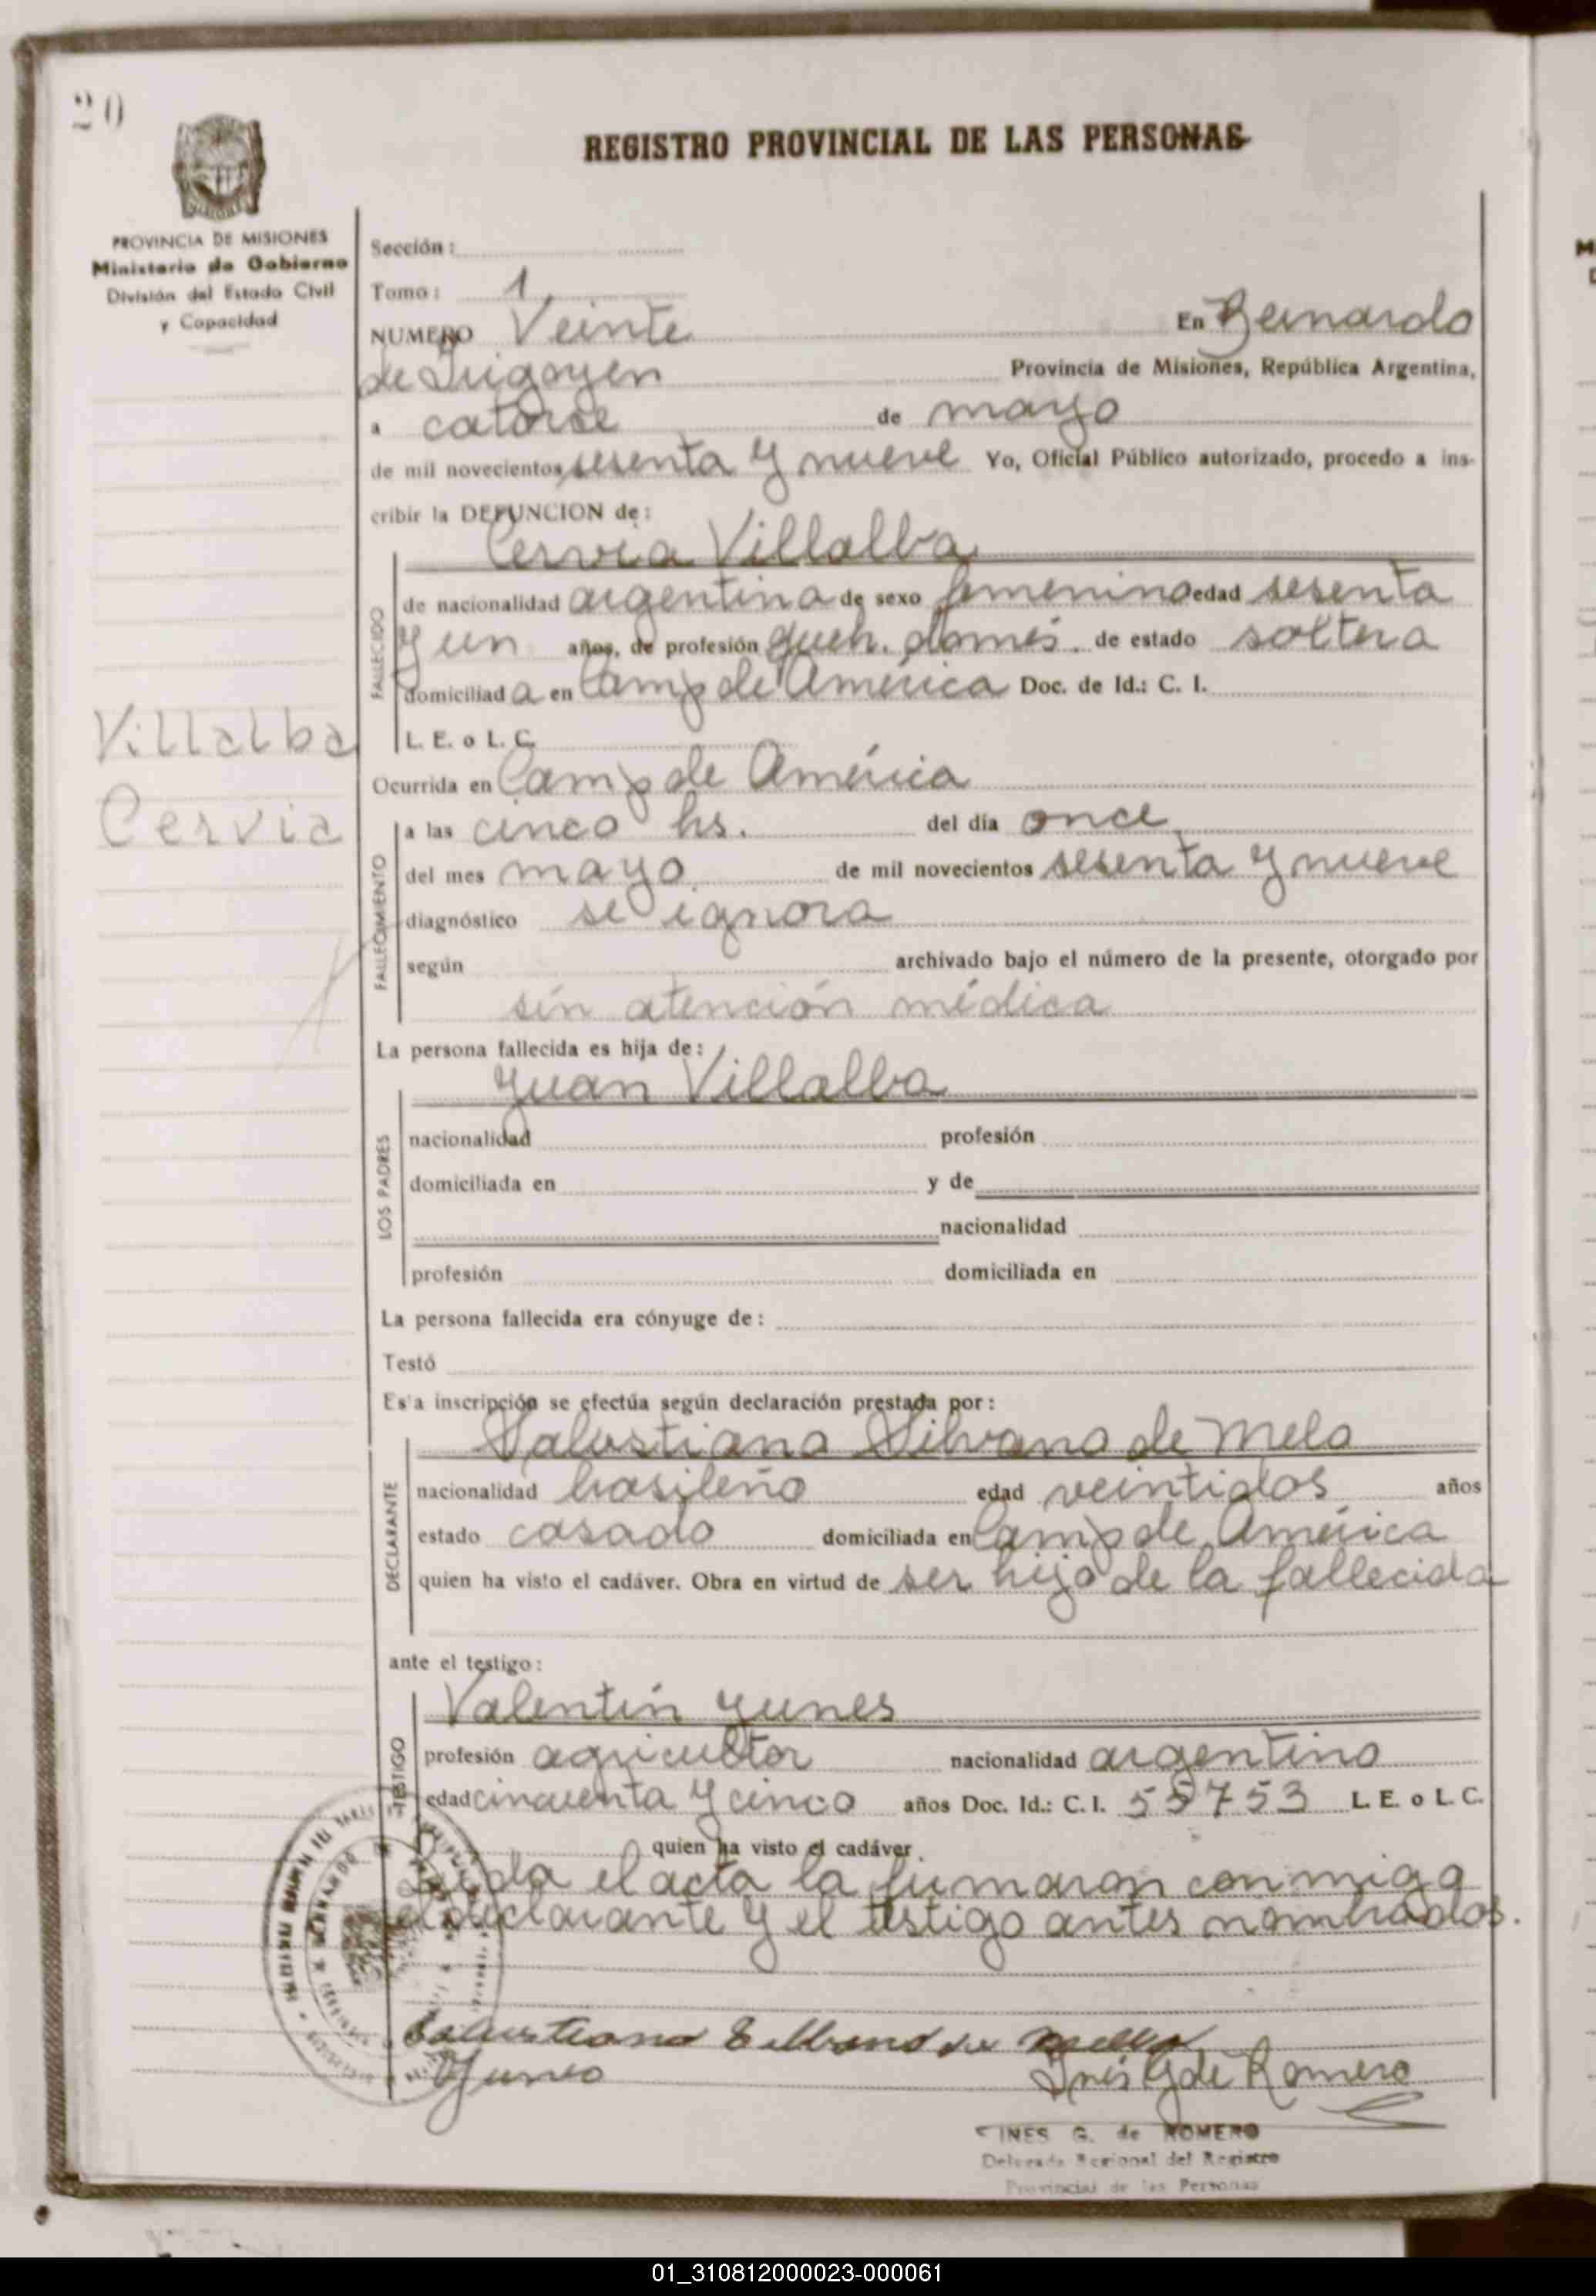 20
REGISTRO PROVINCIAL DE LAS PERSONAS
PROVINCIA DE MISIONES
Ministerio de Gobierno
División del Estado Civil
y Capacidad
Sección:
Tomo: 1
NUMERO Veinte En Bernardo
de Irigoyen Provincia de Misiones, República Argentina,
a catorse de mayo
de mil novecientos sesenta y nueve Yo, Oficial Público autorizado, procedo a ins-
cribir la DEFUNCION de:
Cervia Villalba
FALLECIDO
de nacionalidad argentina de sexo femenino edad sesenta
y un años, de profesión queh. domés. de estado soltera
domiciliada en Camp de América Doc. de Id.: C. I.
L. E. o L. C.
Villalba
Cervia
Ocurrida en Camp de América
FALLECIMIENTO
a las cinco hs. del día once
del mes mayo de mil novecientos sesenta y nueve
diagnóstico se ignora
según archivado bajo el número de la presente, otorgado por
sin atención médica
La persona fallecida es hija de:
Juan Villalba
LOS PADRES
nacionalidad profesión
domiciliada en y de
nacionalidad
profesión domiciliada en
La persona fallecida era cónyuge de:
Testó
Es'a inscripción se efectúa según declaración prestada por:
Salustiano Silvano de Melo
DECLARANTE
nacionalidad brasileño edad veintidos años
estado casado domiciliada en Camp de América
quien ha visto el cadáver. Obra en virtud de ser hijo de la fallecida
ante el testigo:
Valentín Yunes
TESTIGO
profesión agricultor nacionalidad argentino
edad cincuenta y cinco años Doc. Id.: C. I. 55753 L. E. o L. C.
quien ha visto el cadáver.
Leída el acta la firmaron conmigo
el declarante y el testigo antes nombrados.
Salustiano de Mello
Yunes Inés G de Romero
INES G. de ROMERO
Delegada Regional del Registro
Provincial de las Personas
01_310812000023-000061